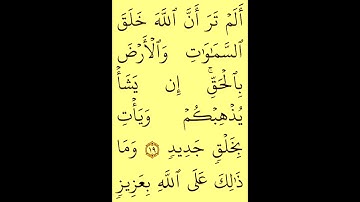 أَلَمۡ تَرَ أَنَّ ٱللَّهَ خَلَقَ
ٱلسَّمَٰوَٰتِ وَٱلۡأَرۡضَ
بِٱلۡحَقِّۚ إِن يَشَأۡ
يُذۡهِبۡكُمۡ وَيَأۡتِ
بِخَلۡقٖ جَدِيدٖ ١٩ وَمَا
ذَٰلِكَ عَلَى ٱللَّهِ بِعَزِيزٖ